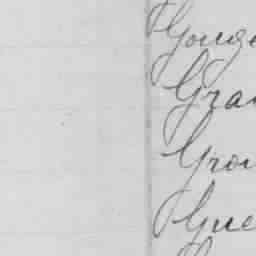 Goug
Gra
Gro
Gue